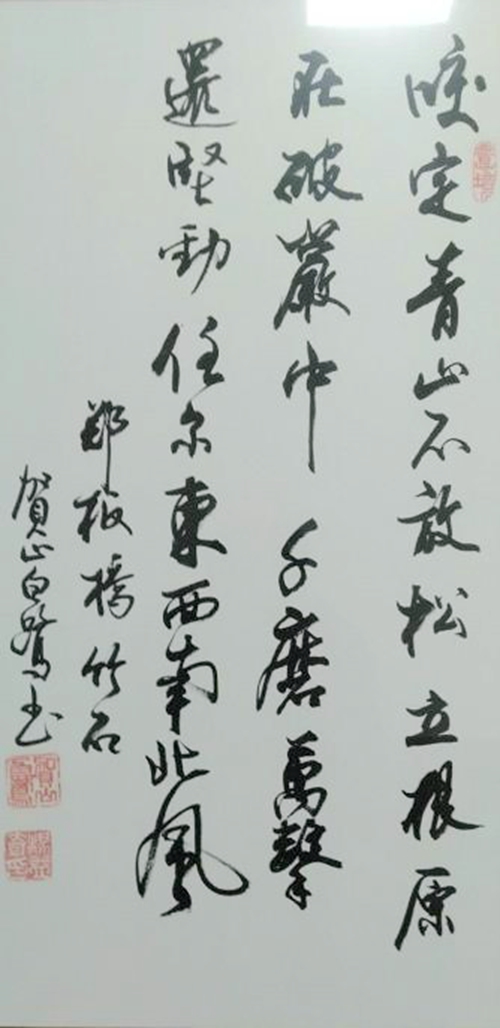 咬定青山不放松立根原
在破巖中千磨萬擊
還堅勁任尔東西南北風
郑板橋竹石
賀山白鷺书